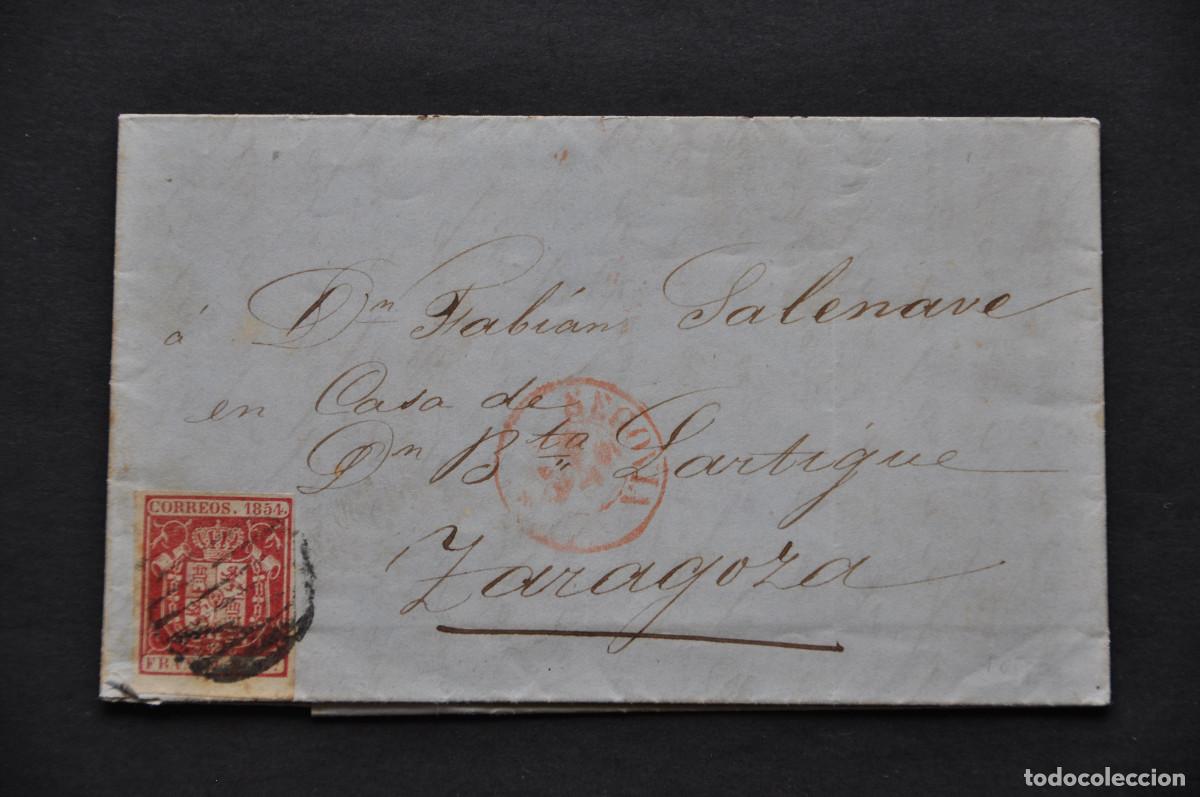 á Dn Fabián Salenave
en Casa de
Dn Bta Lartigue
Zaragoza
SEGOVIA
CORREOS. 1854.
todocoleccion